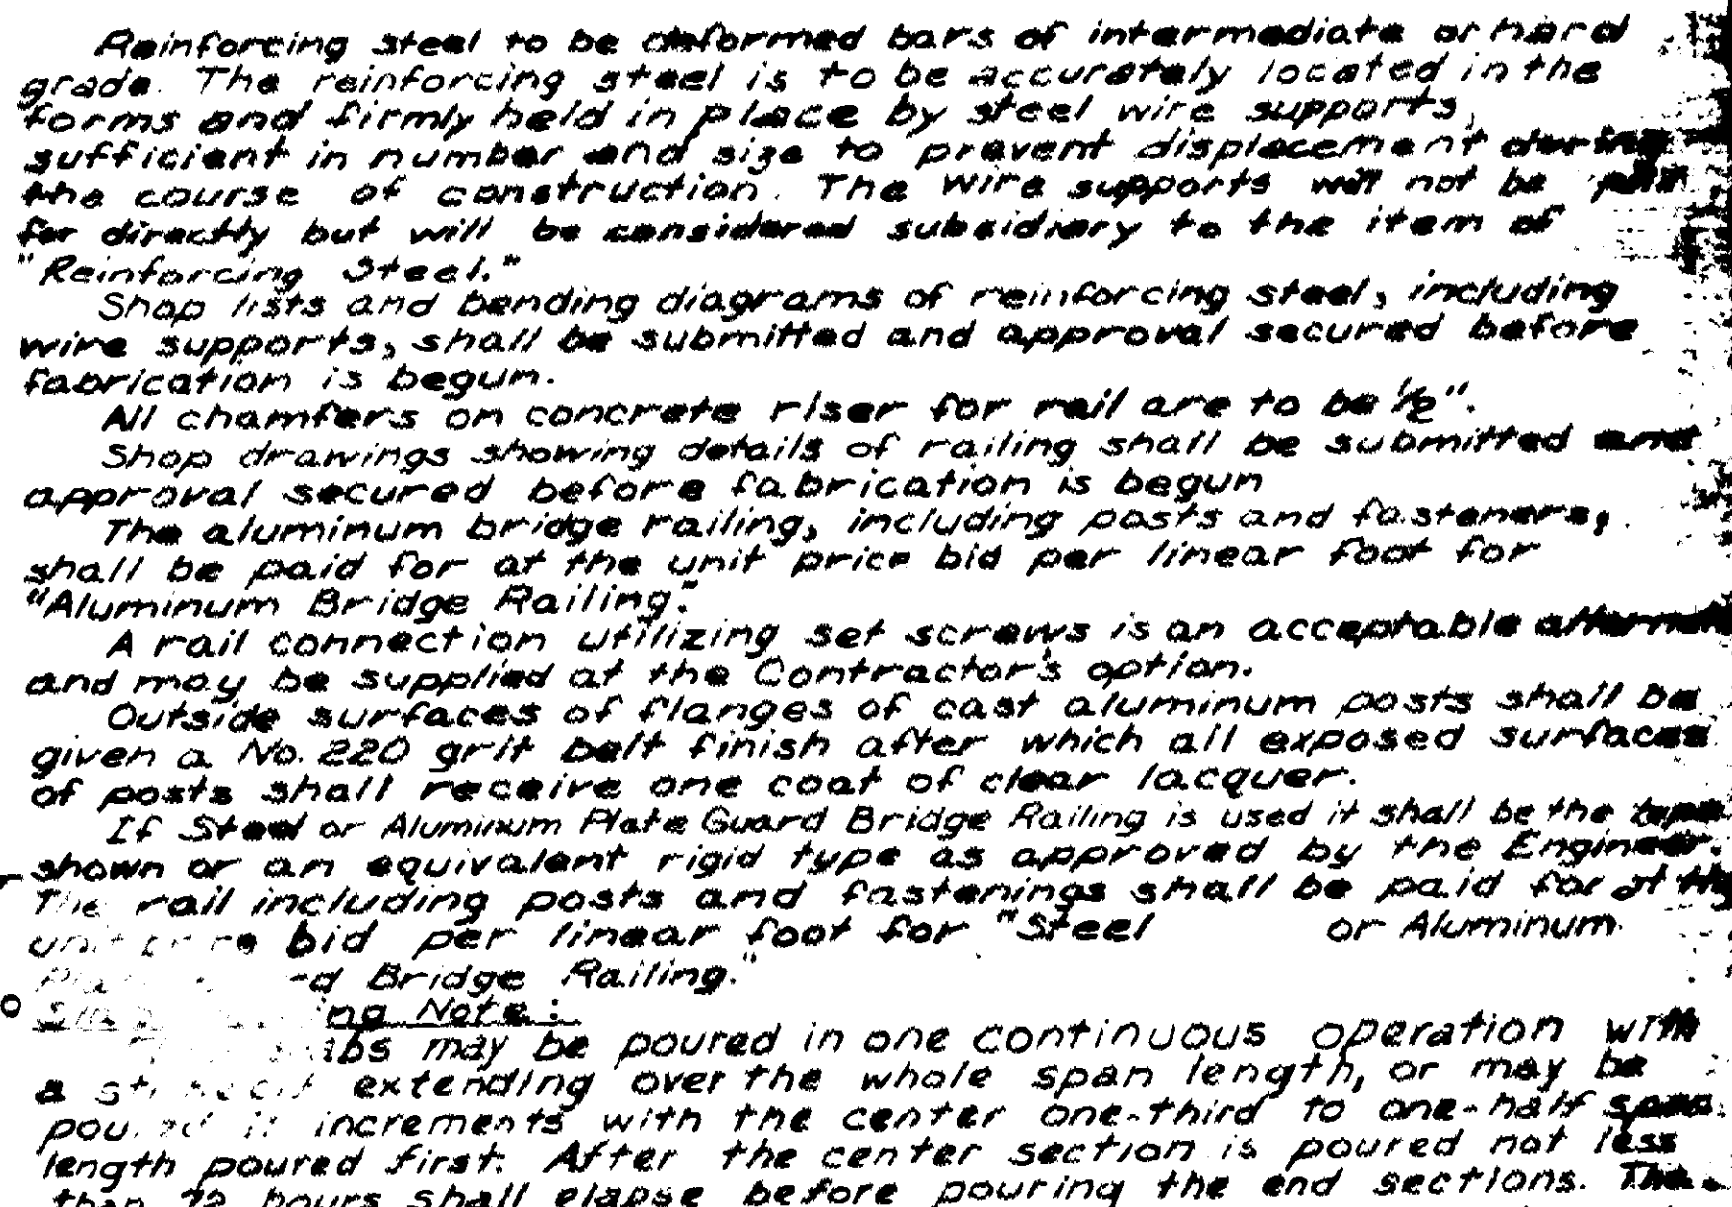 Reinforcing steel to be deformed bars of intermediate or hard
grade. The reinforcing steel is to be accurately located in the
forms and firmly held in place by steel wire supports,
sufficient in number and size to prevent displacement during
the course of construction. The wire supports will not be paid
for directly but will be considered subsidiary to the item of
"Reinforcing Steel."
Shop lists and bending diagrams of reinforcing steel, including
wire supports, shall be submitted and approval secured before
fabrication is begun.
All chamfers on concrete riser for rail are to be 1/2".
Shop drawings showing details of railing shall be submitted and
approval secured before fabrication is begun
The aluminum bridge railing, including posts and fasteners,
shall be paid for at the unit price bid per linear foot for
"Aluminum Bridge Railing."
A rail connection utilizing set screws is an acceptable
and may be supplied at the Contractor's option.
Outside surfaces of flanges of cast aluminum posts shall be
given a No. 220 grit belt finish after which all exposed surfaces
of posts shall receive one coat of clear lacquer.
If Steel or Aluminum Plate Guard Bridge Railing is used it shall be the type
shown or an equivalent rigid type as approved by the Engineer.
The rail including posts and fastenings shall be paid for at the
unit price bid per linear foot for "Steel or Aluminum
Bridge Railing."
Note:
may be poured in one continuous operation with
a extending over the whole span length, or may be
poured in increments with the center one-third to one-half span
length poured first. After the center section is poured not less
than 72 hours shall elapse before pouring the end sections. The